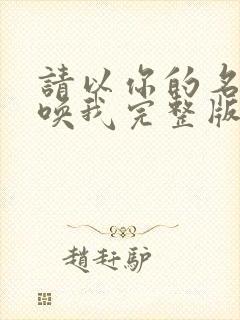 請以你的名
喚我完整版
趙赶驴